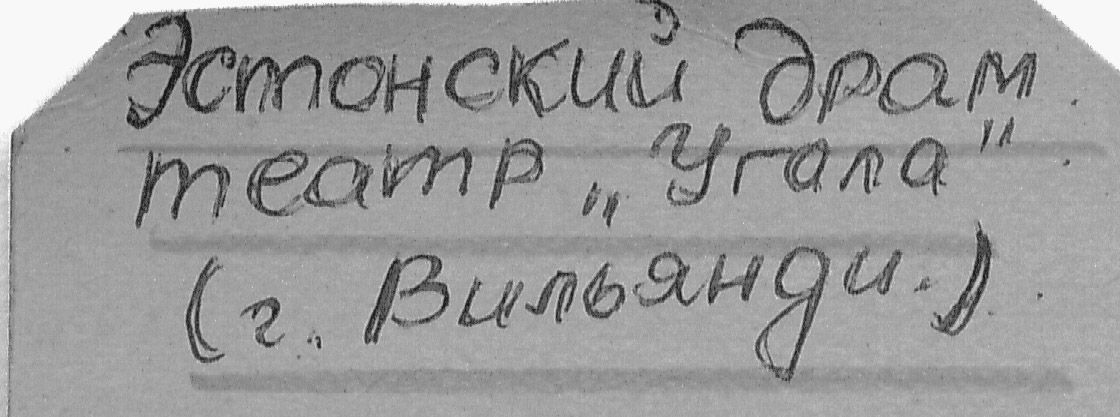 Эстонский драм.
театр „Угала".
(г. Вильянди.)